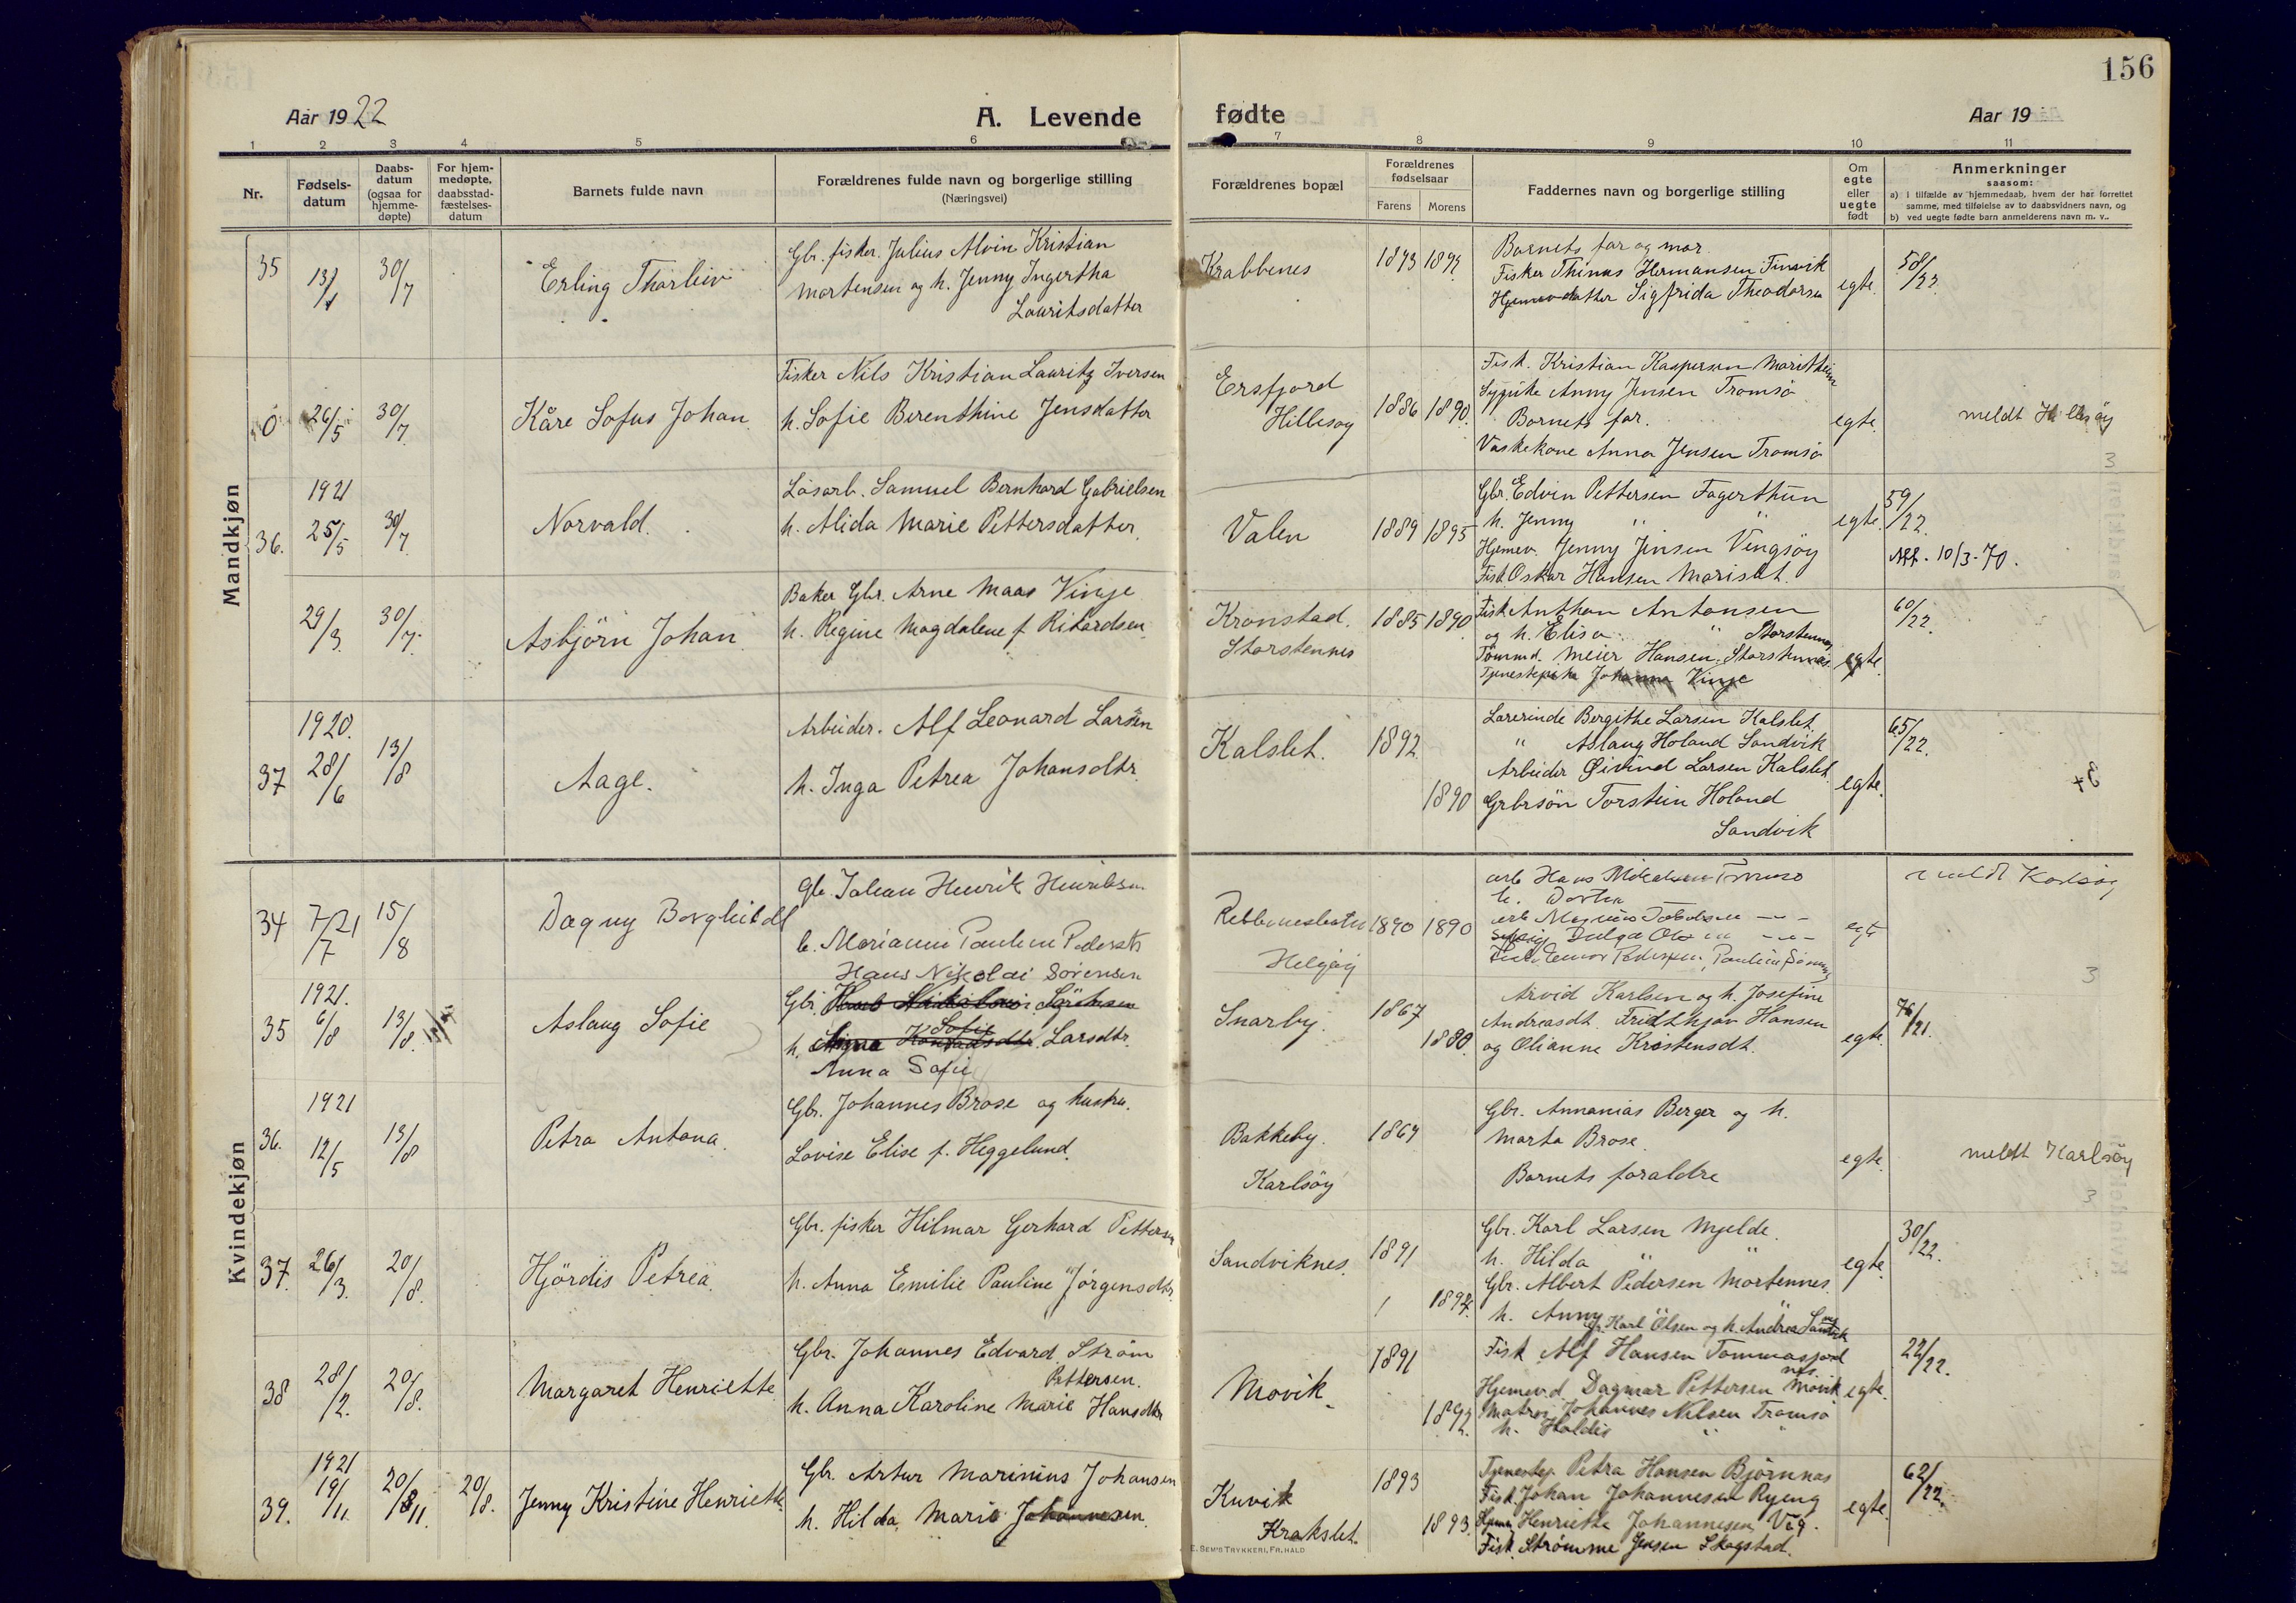 156
Aar 1922
A. Levende
fødte
Aar 19
1 2 3 4 5 6 7 8 9 10 11
Nr.
Fødsels-
datum
Daabs-
datum
(ogsaa for
hjemme-
døpte)
For hjem-
medøpte,
daabsstad-
fæstelses-
datum
Barnets fulde navn
Forældrenes fulde navn og borgerlige stilling
(Næringsvei)
Forældrenes bopæl
Forældrenes
fødselsaar
Farens Morens
Faddernes navn og borgerlige stilling
Om
egte
eller
uegte
født
Anmerkninger
saasom:
a) i tilfælde av hjemmedaab, hvem der har forrettet
samme, med tilføielse av to daabsvidners navn, og
b) ved uegte fødte barn anmelderens navn m. v..
Mandkjøn
35 13/1 30/7 Erling Thorleiv
Gbr. fisker. Julius Alvin Kristian
Mortensen og h. Jenny Ingertha
Lauritsdatter
Krabbenes 1893 1892
Barnets far og mor.
Fisker Thinus Hermansen Finvik
Hjemmev. datter Sigfrida Theodorsen
egte 58/22
0 26/5 30/7 Kåre Sofus Johan
Fisker Nils Kristian Lauritz Iversen
h. Sofie Berenthine Jensdatter
Ersfjord
Hillesøy
1886 1890.
Fisk. Kristian Kaspersen
Sypike Anny Jensen Tromsø
Barnets far.
Vaskekone Anna Jensen Tromsø
egte. meldt Hillesøy
3
36. 1921
25/5 30/7 Norvald.
Løsarb. Samuel Bernhard Gabrielsen
h. Alida Marie Pettersdatter.
Valen 1889 1895
Gbr. Edvin Pettersen Fagerthun
h. Jenny " "
Hjemev. Jenny Jensen Vengsøy
Fisk Oskar Hansen Marislet.
egte. 59/22.
Att. 10/3-70.
29/3. 30/7. Asbjörn Johan
Baker Gbr. Arne Maas Vinje
h. Regine Magdalene f. Rikardsen.
Kronstad.
Storstennes
1885 1890
Fisk Anthon Antonsen
og h. Elisa " Storstennes
Tömmd. Meier Hansen. Storstennes
Tjenestepike Johanna Vinje
egte. 60/22.
37 1920.
28/6 13/8 Aage.
Arbeider. Alf Leonard Larsen
h. Inga Petrea Johansdtr.
Kalslet. 1892.
1890
Lærerinde Bergithe Larsen Kalslet.
" Aslaug Holand Sandvik
Arbeider Øivind Larsen Kalslet.
Grbrsön Torstein Holand
Sandvik
egte. 65/22.
Kvindekjøn
34 7/7 21 15/8 Dagny Borghild
Gb. Johan Henrik Henriksen
h. Marianne Pauline Pedersdtr
Helgøy
1890 1890
arb Hans Mikalsen Tromsø
h. Dorthea
egte
meldt Karlsøy
3
35 1921.
6/8 13/8. Aslaug Sofie
Hans Nikolai Sørensen
Gbr. Hans Nikolai Sørensen
h. Larsdtr.
Anna Sofie
Snarby. 1867
1880.
Arvid Karlsen og h. Josefine
Andreasdt. Fridthjov Hansen
og Olianne Kristensdt.
egte. 76/21.
36. 1921
12/5 13/8 Petra Antona.
Gbr. Johannes Brose og hustru.
Lovise Elise f. Heggelund.
Bakkeby.
Karlsöy
1867
Gbr. Annanias Berger og h.
Marta Brose.
Barnets foraldre
egte. meldt Karlsöy
3
37. 26/3. 20/8. Hjördis Petrea.
Gbr. fisker Hilmar Gerhard Pettersen
h. Anna Emilie Pauline Jörgensdtr.
Sandviknes. 1891
1892.
Gbr. Karl Larsen Mjelde.
h. Hilda " "
Gbr. Albert Pedersen Mortennes.
h. Anny
Karl Olsen og h. Andrea Sandvik
egte. 30/22.
38 28/2. 20/8. Margaret Henriette
Gbr. Johannes Edvard Strøm
Pettersen.
h. Anna Karoline Marie Hansdtr
Movik. 1891
1892.
Fisk Alf Hansen Tommasjord
nes.
Hjemev.d. Dagmar Pettersen Movik
Matros Johannes Nilsen Tromsö
h. Haldis " "
egte. 22/22.
39. 1921
19/11. 20/11. 20/8. Jenny Kristine Henriette
Gbr. Artur Marinius Johansen
h. Hilda Marie Johannesen.
Kuvik
Krakslet.
1893
1893.
Tjenestep. Petra Hansen Bjørnnas
Fisk. Johan Johannesen Ryeng
Hjemev. Henriette Johannesen Våg.
Fisk. Strømme Jensen Skogstad.
egte. 62/22.
E. SEM'S TRYKKERI, FR.HALD